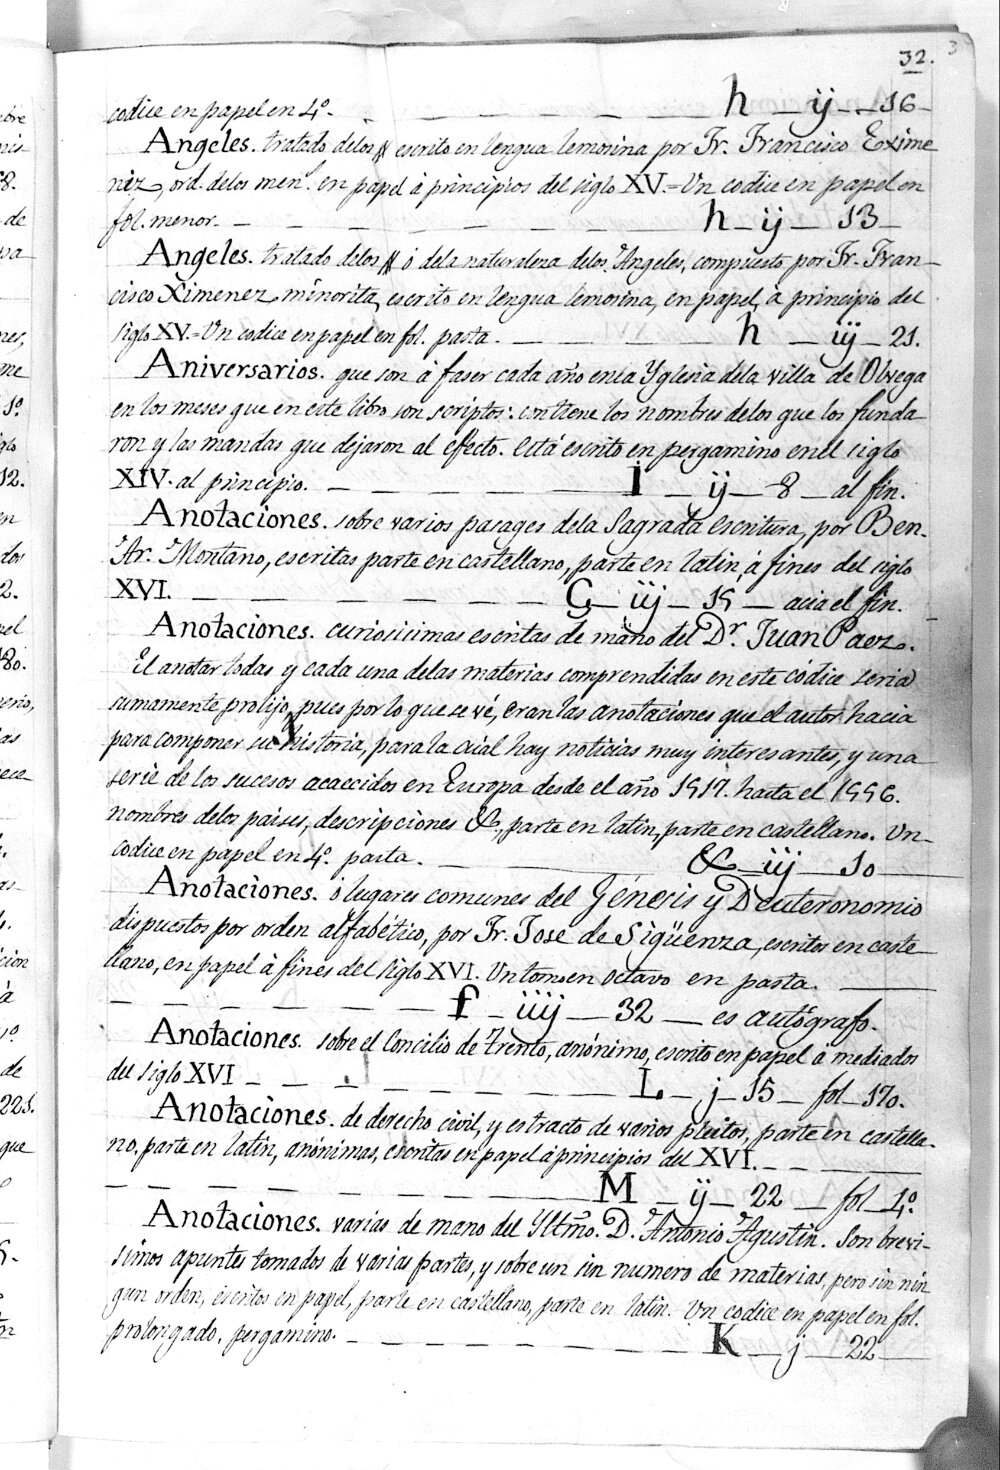 32.
3
codice en papel en 4º. _ _ _ _ _ _ h _ ij _ _ 16 _
Angeles. tratado delos // escrito en lengua lemosina por Fr. Francisco Exime
niz, ord. delos men.s en papel á principios del siglo XV.=Un codice en papel en
fol. menor. _ _ _ _ _ _ _ h _ ij _ 13 _
Angeles. tratado delos // ó dela naturaleza delos Angeles, compuesto por Fr. Fran_
cisco Ximenez, minorita, escrito en lengua lemosina, en papel, á principio del
siglo XV.=Un codice en papel en fol. pasta. _ _ _ _ h _ iij _ 21.
Aniversarios. que son á faser cada año en la Yglesia dela villa de Olvega
en los meses que en este libro son scriptos: contiene los nombres delos que los funda
ron y las mandas que dejaron al efecto. Está escrito en pergamino en el siglo
XIV. al principio. _ _ _ _ _ _ I _ ij _ 8 _ al fin.
Anotaciones. sobre varios pasages dela Sagrada escritura, por Ben.
Ar. Montano, escritas parte en castellano, parte en latin, á fines del siglo
XVI. _ _ _ _ _ _ _ Ç _ iij _ 15 _ acia el fin.
Anotaciones. curiosisimas escritas de mano del Dr. Juan Paez.
El anotar todas y cada una delas materias comprendidas en este códice seria
sumamente prolijo, pues por lo que se vé, eran las anotaciones que el autor hacia
para componer su historia, para la cúal hay noticias muy interesantes, y una
serie de los sucesos acaecidos en Europa desde el año 1517. hasta el 1556.
nombres delos paises, descripciones &., parte en latin, parte en castellano. Un_
codice en papel en 4º. pasta. _ _ & _ iij _ 10 _
Anotaciones. ó lugares comunes del Génesis y Deuteronomio
dispuestos por orden alfabético, por Fr. José de Sigüenza, escritos en caste
llano, en papel á fines del siglo XVI. Un tomo en octavo en pasta. _
_ _ _ _ _ _ f _ iiij _ 32 _ es autógrafo.
Anotaciones. sobre el Concilio de Trento, anónimo, escrito en papel á mediados
del siglo XVI _ _ _ _ _ _ _ L _ j _ 15 _ fol _ 170.
Anotaciones. de derecho civil, y estracto de varios pleitos, parte en castella_
no, parte en latin, anónimas, escritas en papel á principios del XVI. _ _
_ _ _ _ _ _ _ M _ ij _ 22 _ fol _ 1º.
Anotaciones. varias de mano del Yltmo. D. Antonio Agustin. Son brevi_
simos apuntes tomados de varias partes, y sobre un sin numero de materias, pero sin nin
gun orden, escritos en papel, parte en castellano, parte en latin. Un codice en papel en fol.
prolongado, pergamino. _ _ _ _ _ _ K _ j _ 22 _